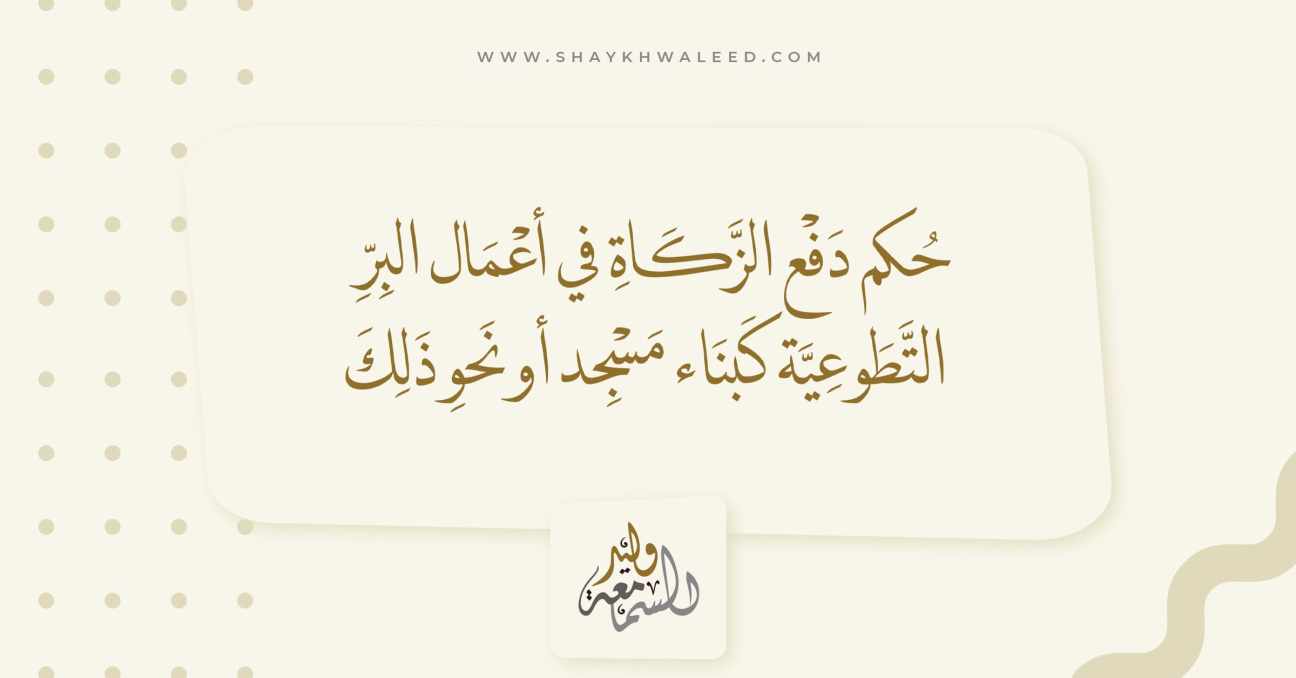 WWW.SHAYKHWALEED.COM
حُكم دَفْع الزَّكَاةِ في أعْمَال البِرِّ
التَّطَوعِيَّة كَبنَاء مَسْجِد أو نَحوِ ذَلِكَ
وليد
السمامعة